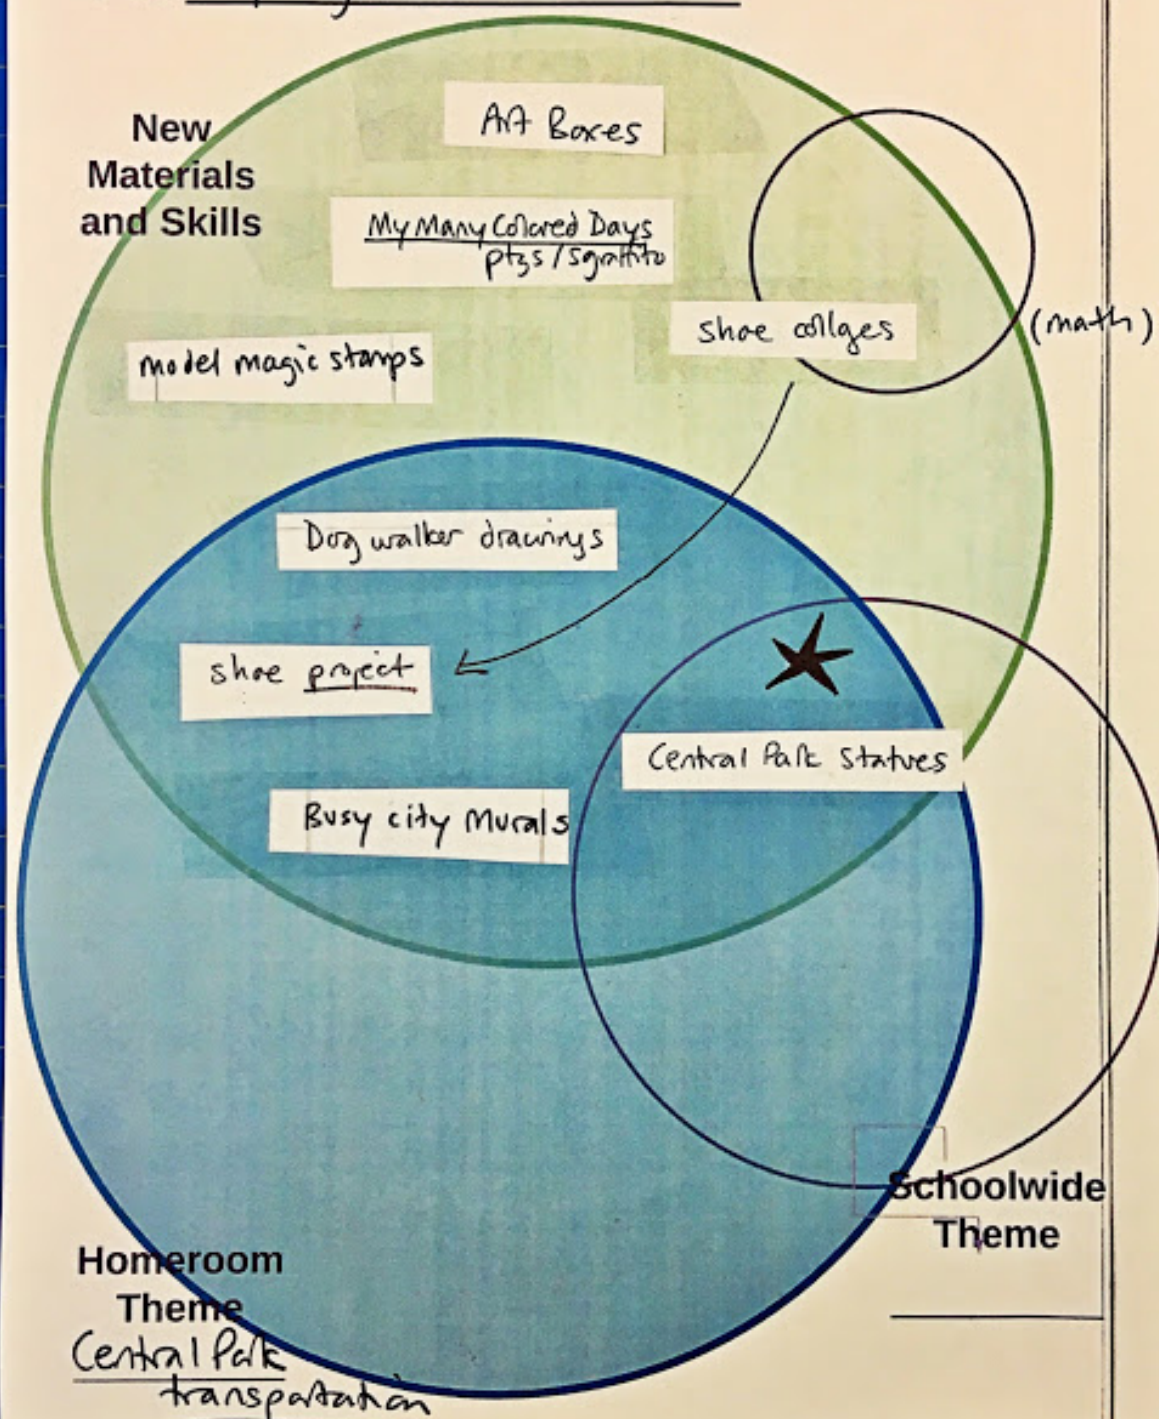 New
Materials
and Skills
Art Boxes
My Many Colored Days
ptgs / sgraffito
shoe collges
(math)
model magic stamps
Dog walker drawings
shoe project
Central Park Statues
Busy city Murals
Schoolwide
Theme
Homeroom
Theme
Central Park
transportation